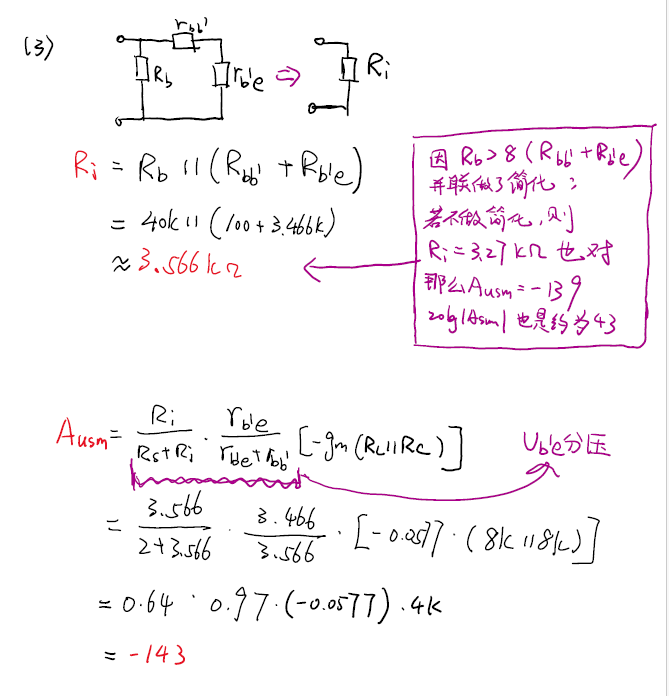 (3)
rbb'
Rb
rb'e
⇒
Ri
Ri = Rb || (Rbb' + Rb'e)
= 40k || (100 + 3.466k)
≈ 3.566kΩ
因 Rb > 8 (Rbb' + Rb'e)
并联做了简化；
若不做简化，则
Ri = 3.27 kΩ 也对
那么 Ausm = -139
20lg|Asm| 也是约为 43
Ausm = Ri/(Rs+Ri) · rb'e/(rb'e+rbb') [-gm (RL||Rc)]
Ub'e分压
= 3.566/(2+3.566) · 3.466/3.566 · [-0.0577 · (8k || 8k)]
= 0.64 · 0.97 · (-0.0577) · 4k
= -143